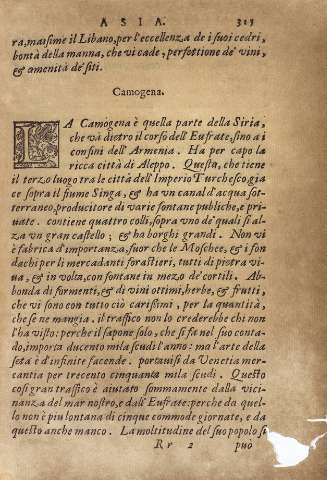 ASIA. 315
ra, massime il Libano, per l'eccellenza de i suoi cedri,
bontà della manna, che vi cade, perfettione de' vini,
& amenità de' siti.
Camogena.
LA Camogena è quella parte della Siria,
che và dietro il corso dell'Eufrate, sino a i
confini dell'Armenia. Ha per capo la
ricca città di Aleppo. Questa, che tiene
il terzo luogo tra le città dell'Imperio Turchesco, gia
ce sopra il fiume Singa, & ha un canal d'acqua sot-
terraneo, produttore di varie fontane publiche, e pri-
uate. contiene quattro colli, sopra vno de' quali si al-
za vn gran castello; & ha borghi grandi. Non vi
è fabrica d'importanza, fuor che le Moschee, & i fon
dachi per li mercadanti forastieri, tutti di pietra vi-
ua, & in volta, con fontane in mezo de' cortili. Ab-
bonda di formenti, & di vini ottimi, herbe, & frutti,
che vi sono con tutto ciò carissimi, per la quantità,
che se ne mangia. il traffico non lo crederebbe chi non
l'ha visto: perche il sapone solo, che si fa nel suo conta-
do, importa ducento mila scudi l'anno: ma l'arte della
seta è d'infinite facende. portauisi da Venetia mer-
cantia per trecento cinquanta mila scudi. Questo
cosi gran traffico è aiutato sommamente dalla vici-
nanza del mar nostro, e dall'Eufrate: perche da quel-
lo non è piu lontana di cinque commode giornate, e da
questo anche manco. La moltitudine del suo popolo si
Rr 2 può